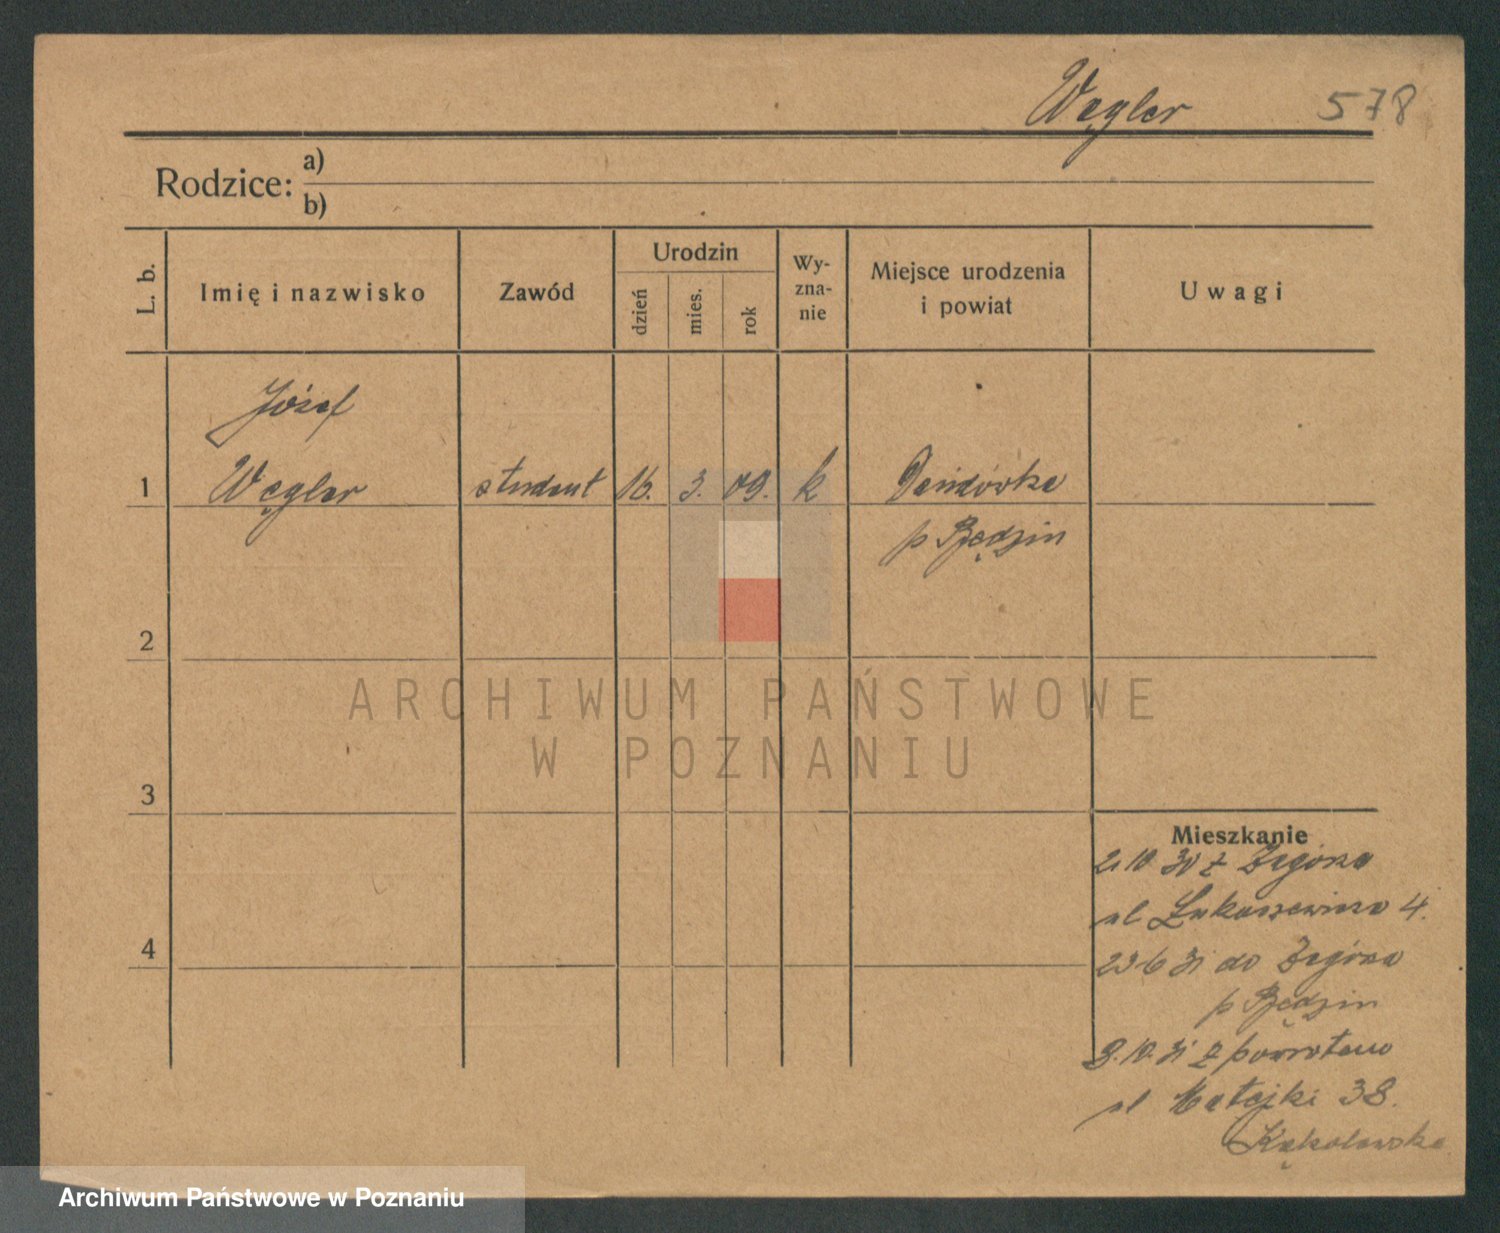 Węgler 578
Rodzice: a)
b)
L. b. Imię i nazwisko Zawód Urodzin dzień mies. rok Wy-zna-nie Miejsce urodzenia i powiat Uwagi
Józef
1 Węgler student 16. 3. 09. k Danidówka
p Będzin
2
ARCHIWUM PAŃSTWOWE
W POZNANIU
3
Mieszkanie
2 10 30 z Zagórza
ul Łukaszewicza 4.
4
23 6 31 do Zagórza
p Będzin
3. 10. 31 z powrotem
ul Matejki 38.
Kąkolewska
Archiwum Państwowe w Poznaniu